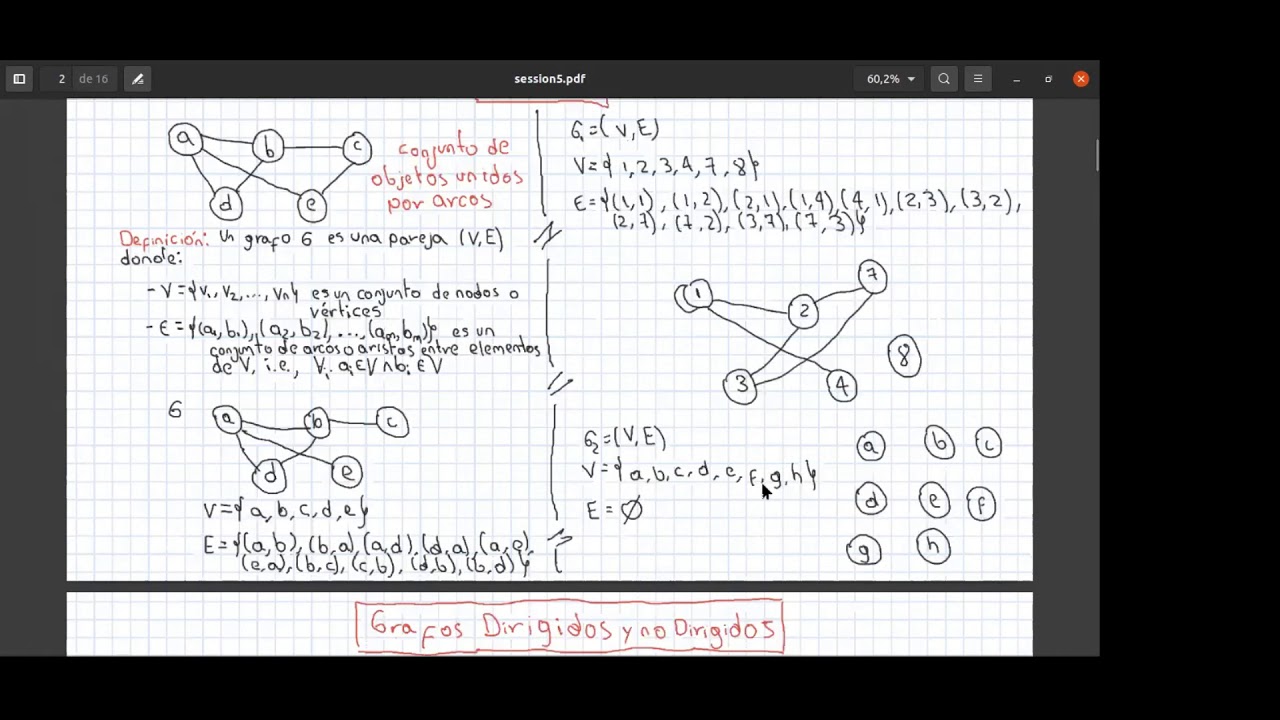 2 de 16
session5.pdf
60,2%
a b c
d e
conjunto de
objetos unidos
por arcos
Definición: Un grafo G es una pareja (V,E)
donde:
- V={v₁, v₂, ..., vn} es un conjunto de nodos o
vértices
- E={(a₁,b₁), (a₂,b₂), ..., (am,bm)} es un
conjunto de arcos o aristas entre elementos
de V, i.e., ∀i aᵢ∈V ∧ bᵢ∈V
G
a b c
d e
V={a,b,c,d,e}
E={(a,b), (b,a), (a,d), (d,a), (a,e),
(e,a), (b,c), (c,b), (d,b), (b,d)}
G₁=(V,E)
V={1,2,3,4,7,8}
E={(1,1), (1,2), (2,1), (1,4), (4,1), (2,3), (3,2),
(2,7), (7,2), (3,7), (7,3)}
7
1 2
8
3 4
G₂=(V,E)
V={a,b,c,d,e,f,g,h}
E=∅
a b c
d e f
g h
Grafos Dirigidos y no Dirigidos